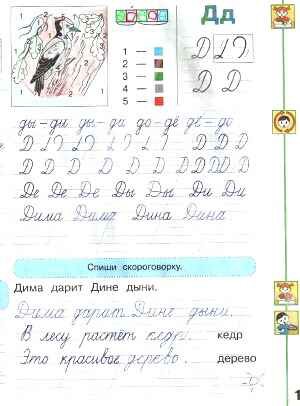 Дд
1 —
2 —
3 —
4 —
5 —
1 2 1
2
1
2
1
Д Д
Д Д
ды – ди ды – ди до – дё де – до
Д Д Д Д Д Д Д Д
Д Д Д Д Д Д Д Д Д Д Д
Де Де Де Ды Ды Ди Ди
Дима Дима Дина Дина
Спиши скороговорку.
Дима дарит Дине дыни.
Дима дарит Дине дыни.
В лесу растёт кедр. кедр
Это красивое дерево. дерево
1